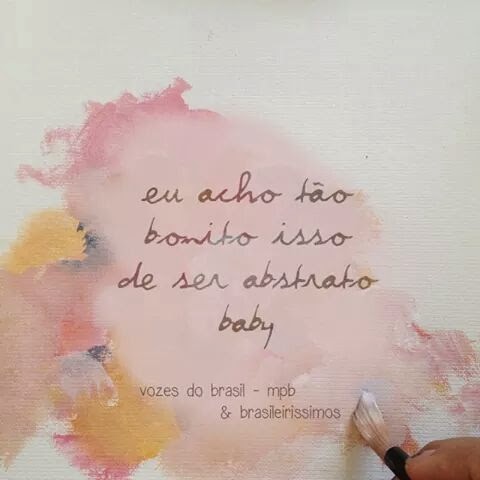 eu acho tão
bonito isso
de ser abstrato
baby
vozes do brasil - mpb
& brasileirissimos